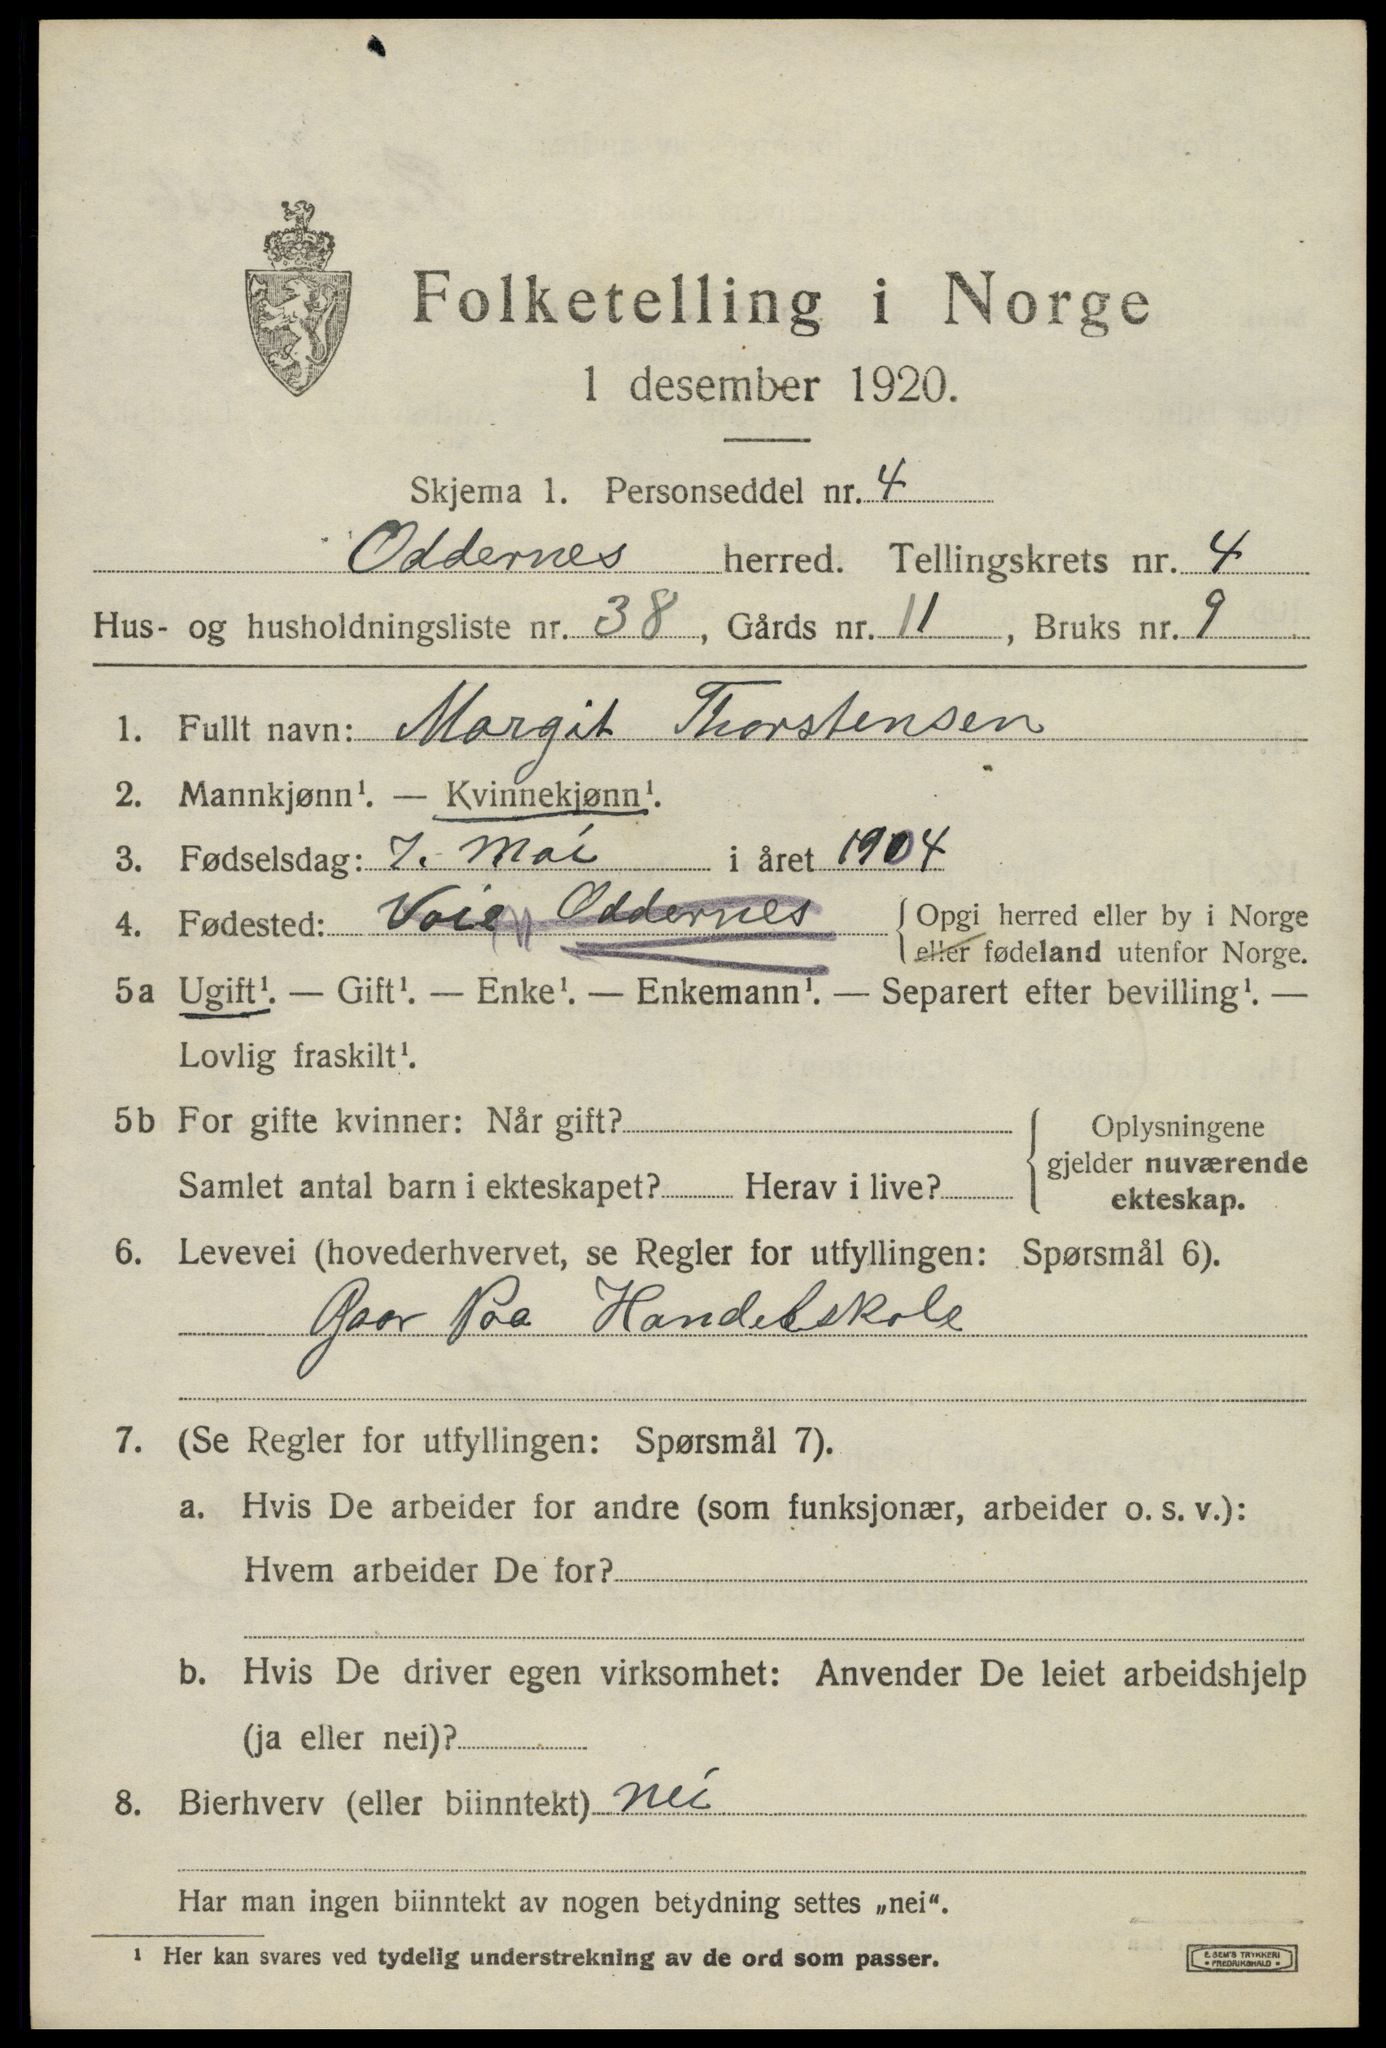 Folketelling i Norge
1 desember 1920.
Skjema 1. Personseddel nr. 4
Oddernes herred. Tellingskrets nr. 4
Hus- og husholdningsliste nr. 38, Gårds nr. 11, Bruks nr. 9
1. Fullt navn: Margit Thorstensen
2. Mannkjønn¹. — Kvinnekjønn¹.
3. Fødselsdag: 7. Mai i året 1904
4. Fødested: Voie Oddernes { Opgi herred eller by i Norge
eller fødeland utenfor Norge.
5a Ugift¹. — Gift¹. — Enke¹. — Enkemann¹. — Separert efter bevilling¹. —
Lovlig fraskilt¹.
5b For gifte kvinner: Når gift?
Samlet antal barn i ekteskapet? Herav i live?
Oplysningene
gjelder nuværende
ekteskap.
6. Levevei (hovederhvervet, se Regler for utfyllingen: Spørsmål 6).
Gaar Paa Handelskole
7. (Se Regler for utfyllingen: Spørsmål 7).
a. Hvis De arbeider for andre (som funksjonær, arbeider o. s. v.):
Hvem arbeider De for?
b. Hvis De driver egen virksomhet: Anvender De leiet arbeidshjelp
(ja eller nei)?
8. Bierhverv (eller biinntekt) nei
Har man ingen biinntekt av nogen betydning settes „nei“.
¹ Her kan svares ved tydelig understrekning av de ord som passer.
E. SEM'S TRYKKERI
• FREDRIKSHALD •